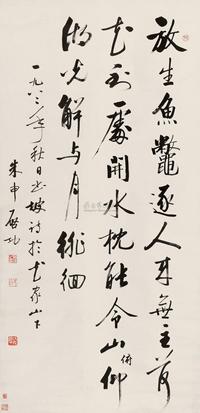 放生魚鱉逐人来無主荷
花到處開水枕能令山俯仰
湖光解与月徘徊
一九八二年秋日书坡诗於山下
朱申啟功